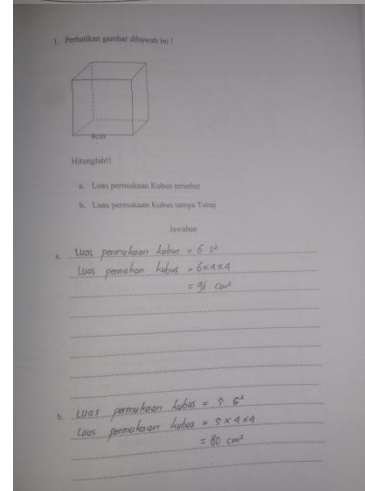 1. Perhatikan gambar dibawah ini !
4cm
Hitunglah!!
a. Luas permukaan Kubus tersebut
b. Luas permukaan Kubus tanpa Tutup
Jawaban
a. Luas permukaan kubus = 6 s²
Luas permukan kubus = 6×4×4
= 96 cm²
b. Luas permukaan kubus = 5 s²
Luas permukaan kubus = 5×4×4
= 80 cm²